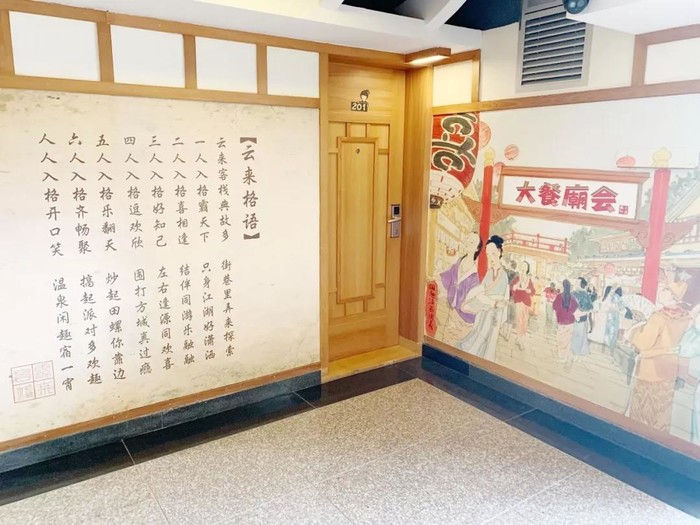 【云来格语】
云来客栈典故多 街巷里弄来探索
一人入格霸天下 只身江湖好潇洒
二人入格喜相逢 结伴同游乐融融
三人入格好知己 左右逢源同欢喜
四人入格逗欢欣 围打方城真过瘾
五人入格乐翻天 炒起田螺你靠边
六人入格齐畅聚 搞起派对多欢趣
人人入格开口笑 温泉闲趣宿一宵
201
大餐廟会